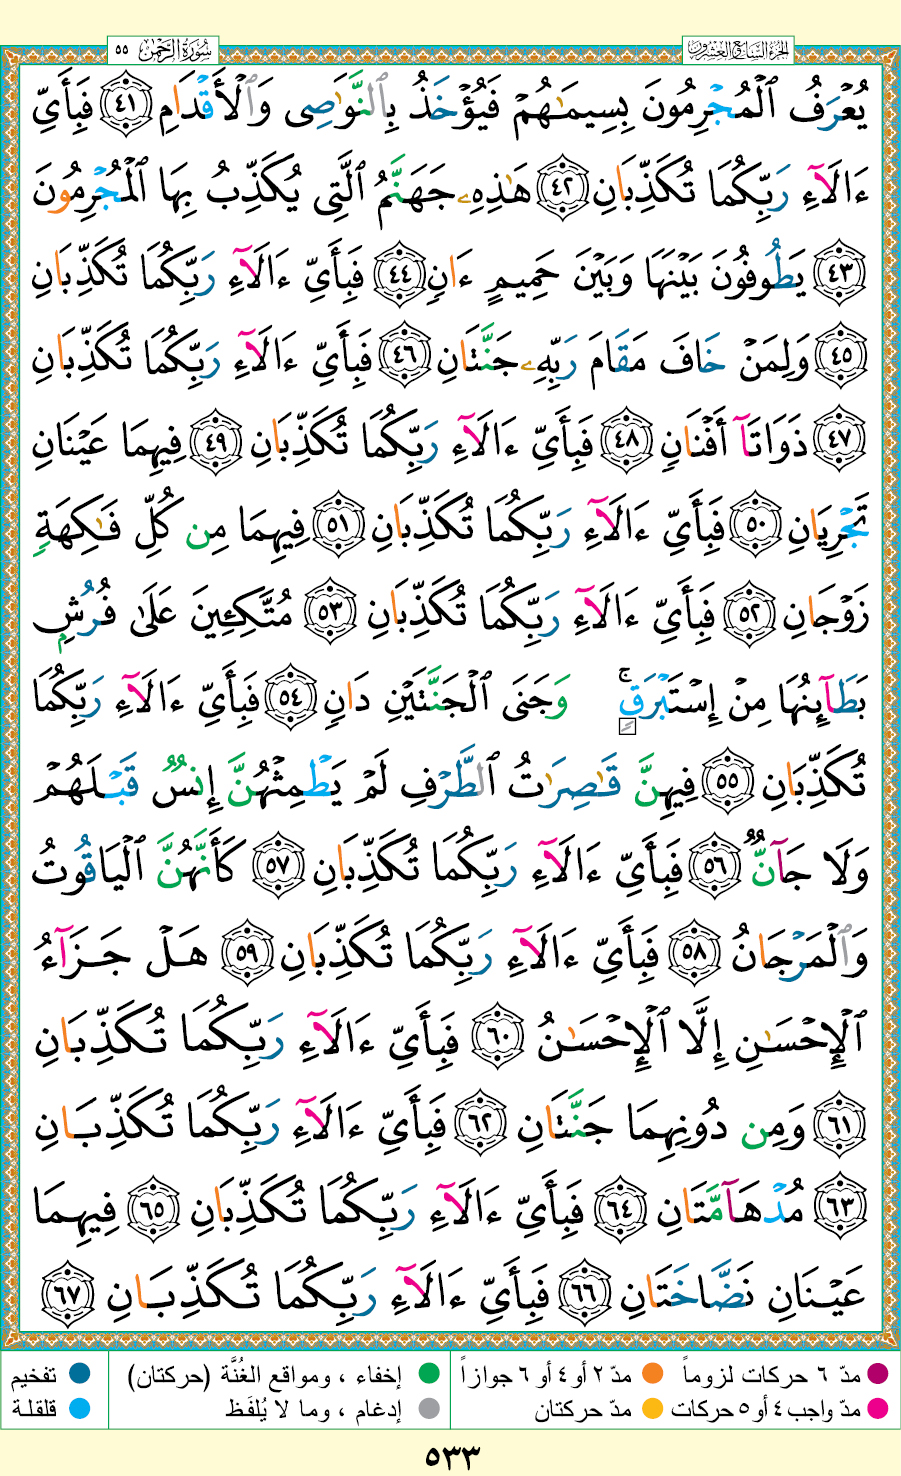 سُورَةُ الرَّحْمَٰن ٥٥
الجزء السابع والعشرون
يُعْرَفُ ٱلْمُجْرِمُونَ بِسِيمَٰهُمْ فَيُؤْخَذُ بِٱلنَّوَٰصِى وَٱلْأَقْدَامِ ٤١ فَبِأَىِّ
ءَالَآءِ رَبِّكُمَا تُكَذِّبَانِ ٤٢ هَٰذِهِۦ جَهَنَّمُ ٱلَّتِى يُكَذِّبُ بِهَا ٱلْمُجْرِمُونَ
٤٣ يَطُوفُونَ بَيْنَهَا وَبَيْنَ حَمِيمٍ ءَانٍ ٤٤ فَبِأَىِّ ءَالَآءِ رَبِّكُمَا تُكَذِّبَانِ
٤٥ وَلِمَنْ خَافَ مَقَامَ رَبِّهِۦ جَنَّتَانِ ٤٦ فَبِأَىِّ ءَالَآءِ رَبِّكُمَا تُكَذِّبَانِ
٤٧ ذَوَاتَآ أَفْنَانٍ ٤٨ فَبِأَىِّ ءَالَآءِ رَبِّكُمَا تُكَذِّبَانِ ٤٩ فِيهِمَا عَيْنَانِ
تَجْرِيَانِ ٥٠ فَبِأَىِّ ءَالَآءِ رَبِّكُمَا تُكَذِّبَانِ ٥١ فِيهِمَا مِن كُلِّ فَٰكِهَةٍ
زَوْجَانِ ٥٢ فَبِأَىِّ ءَالَآءِ رَبِّكُمَا تُكَذِّبَانِ ٥٣ مُتَّكِـِٔينَ عَلَىٰ فُرُشٍۭ
بَطَآئِنُهَا مِنْ إِسْتَبْرَقٍ ۚ وَجَنَى ٱلْجَنَّتَيْنِ دَانٍ ٥٤ فَبِأَىِّ ءَالَآءِ رَبِّكُمَا
تُكَذِّبَانِ ٥٥ فِيهِنَّ قَٰصِرَٰتُ ٱلطَّرْفِ لَمْ يَطْمِثْهُنَّ إِنسٌ قَبْلَهُمْ
وَلَا جَآنٌّ ٥٦ فَبِأَىِّ ءَالَآءِ رَبِّكُمَا تُكَذِّبَانِ ٥٧ كَأَنَّهُنَّ ٱلْيَاقُوتُ
وَٱلْمَرْجَانُ ٥٨ فَبِأَىِّ ءَالَآءِ رَبِّكُمَا تُكَذِّبَانِ ٥٩ هَلْ جَزَآءُ
ٱلْإِحْسَٰنِ إِلَّا ٱلْإِحْسَٰنُ ٦٠ فَبِأَىِّ ءَالَآءِ رَبِّكُمَا تُكَذِّبَانِ
٦١ وَمِن دُونِهِمَا جَنَّتَانِ ٦٢ فَبِأَىِّ ءَالَآءِ رَبِّكُمَا تُكَذِّبَانِ
٦٣ مُدْهَآمَّتَانِ ٦٤ فَبِأَىِّ ءَالَآءِ رَبِّكُمَا تُكَذِّبَانِ ٦٥ فِيهِمَا
عَيْنَانِ نَضَّاخَتَانِ ٦٦ فَبِأَىِّ ءَالَآءِ رَبِّكُمَا تُكَذِّبَانِ ٦٧
مدّ ٦ حركات لزوماً مدّ ٢ أو ٤ أو ٦ جوازاً إخفاء ، ومواقع الغُنَّة (حركتان) تفخيم
مدّ واجب ٤ أو ٥ حركات مدّ حركتان إدغام ، وما لا يُلفَظ قلقلة
٥٣٣